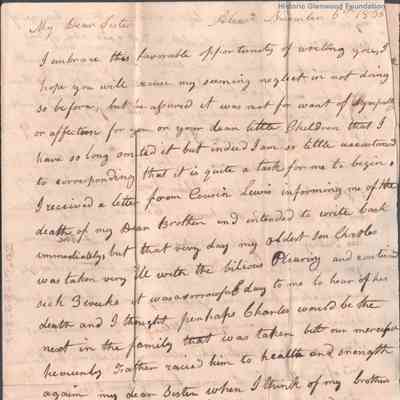 Historic Glenwood Foundation
My Dear Sister November 6th
I embrace this favorable opportunity of writing you, I
hope you will excuse my seeming neglect in not doing
so before, but be assured it was not for want of Sympathy
or affection for you or your dear little Children that I
have so long omited it but indeed I am so little accustomed
to corresponding that it is quite a task for me to begin
I received a letter from Cousin Lewis informing me of the
death of my Dear Brother and intended to write back
immediately, but that very day my oldest son Charles
was taken very ill with the bilious Pleurisy and continued
sick 3 weeks it was a sorrowful day to me to hear of his
death and I thought perhaps Charles would be the
next in the family that was taken but our merciful
heavenly Father raised him to health and strength
again my dear Sister when I think of my brothers